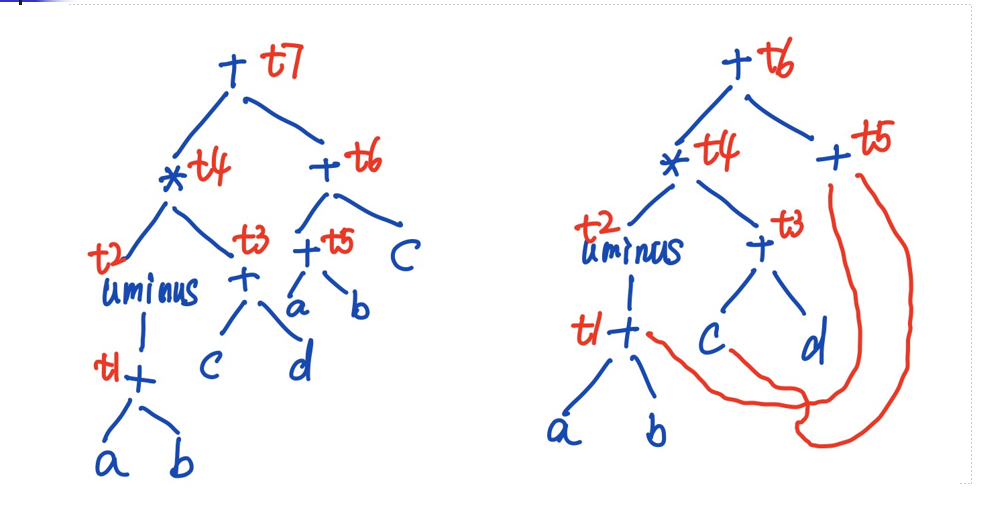 + t7
* t4
+ t6
t2
uminus
t3
+
+ t5
c
a
b
t1 +
c
d
a
b
+ t6
* t4
+ t5
t2
uminus
+ t3
t1 +
c
d
a
b